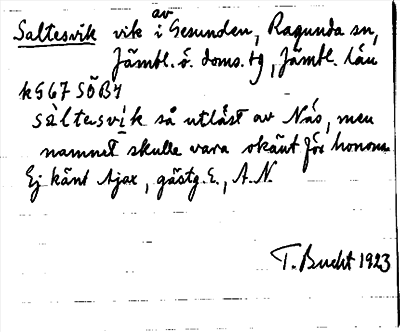 Saltesvik vik i av Gesunden, Ragunda sn,
Jämtl. ö. doms. tg, Jämtl. län
k567 SÖB4
sàltesvik så utläst av Näs, men
namnet skulle vara okänt för honom
Ej känt Ajax, gästg. E., A.N.
T. Bucht 1923